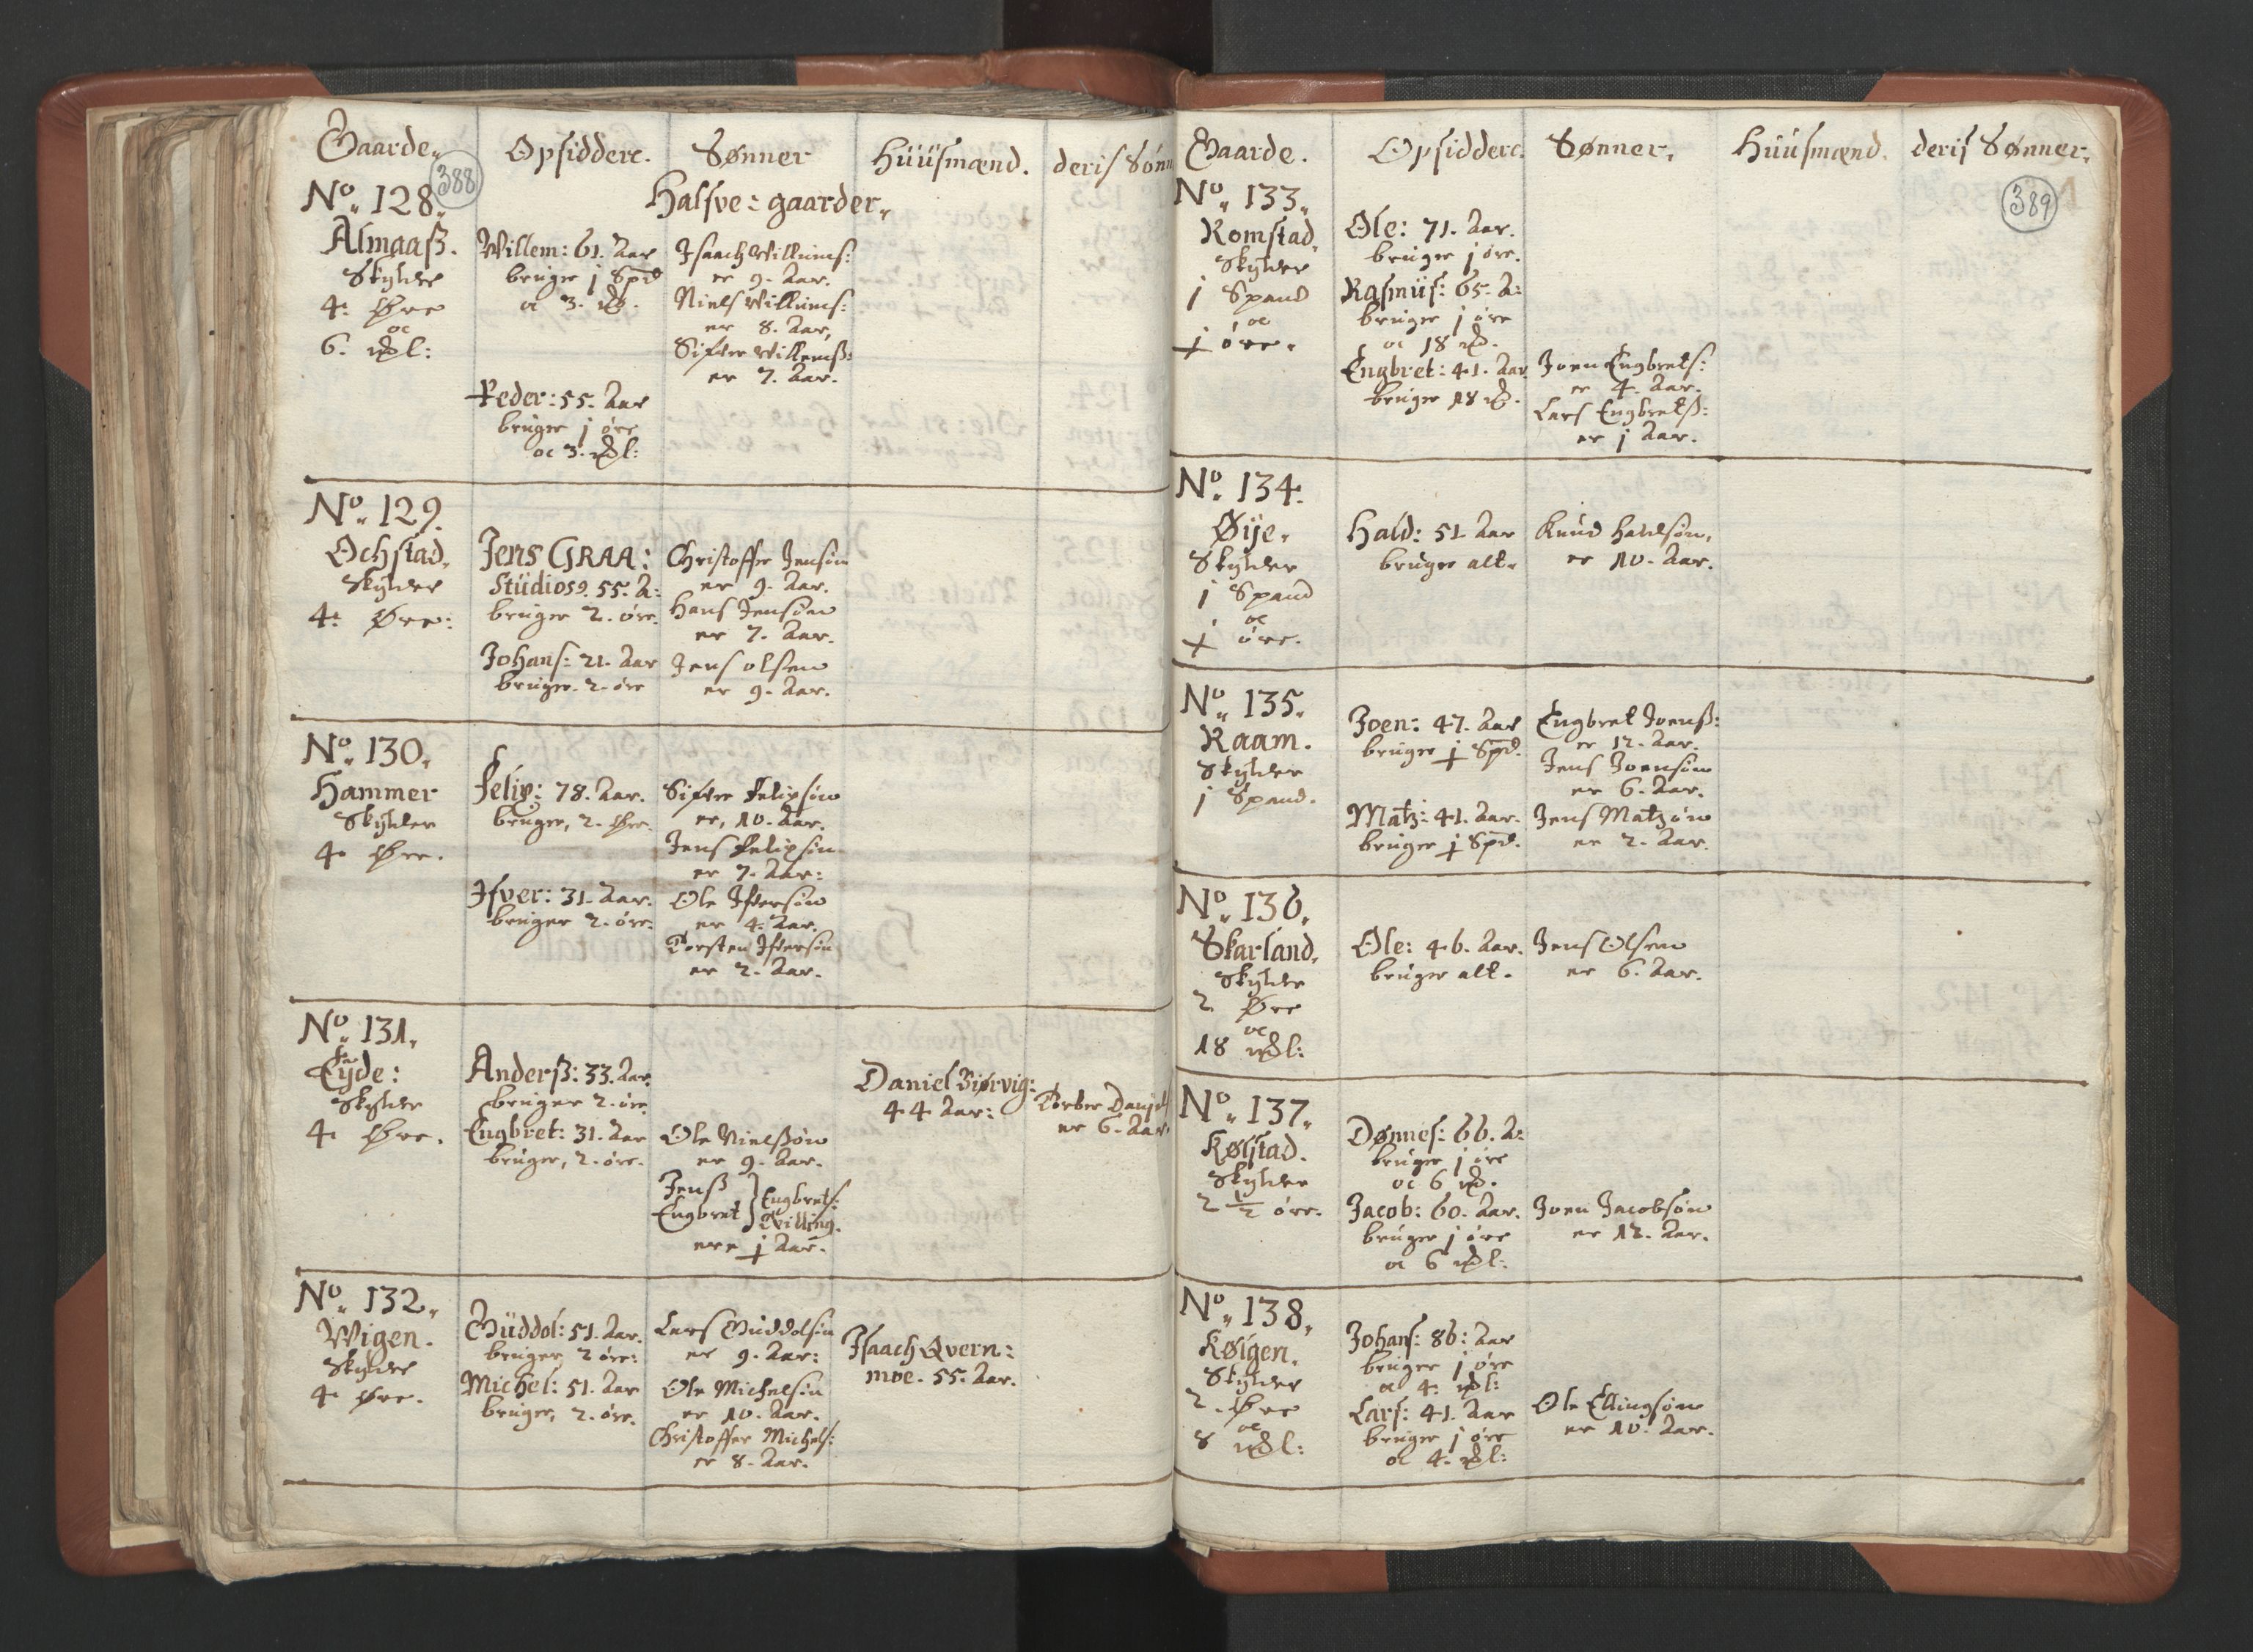 Gaarde. Opsiddere. Sønner Huusmænd. deris Sønn
388
No. 128. Halfve: gaarder.
Almaaß.
Skylder
4. Øre
oc
6. ℔l:
Willem: 61. Aar
bruger j Spd
oc 3. ℔.
Isaach Willums:
er 9. Aar.
Niels Willums:
er 8. Aar,
Sifver Willemß:
er 7. Aar.
Peder: 55. Aar
bruger j øre
oc 3. ℔l:
No. 129.
Ochstad.
Skylder
4. Øre:
Jens GRAA:
Studios9. 55. A:
bruger 2. øre.
Christoffer Jensøn
er 9. Aar.
Hans Jensøn
er 7. Aar.
Johans: 21. Aar
bruger. 2. øre
Jens olsen
er 9. Aar.
No. 130.
Hammer
Skylder
4. Øre.
Felip: 78. Aar.
bruger, 2. Øre.
Sifver Felipsøn
er, 10. Aar.
Jens Felipsøn
er 7. Aar:
Ifver: 31. Aar.
bruger 2. øre.
Ole Ifversøn
er 4. Aar.
Torsten Ifversøn
er 2. Aar.
No. 131.
Eyde:
Skylder
4. Øre.
Anderß: 33. Aar.
bruger 2. øre
Daniel Biørvig:
44 Aar:
Torber Daniels
er 6. Aar.
Engbret: 31. Aar
bruger, 2. øre.
Ole Nielßøn
er 9. Aar.
Jenß } Engbrets:
Engbret } Tvilling.
ere j Aar.
No. 132.
Wigen.
Skylder
4. Øre.
Guddol: 51. Aar.
bruger, 2 øre:
Lars Guddolsøn
er 9. Aar:
Isaach Qvern:
moe. 55. Aar.
Michel: 51. Aar
bruger, 2. øre.
Ole Michelsøn
er 10. Aar.
Christoffer Michels:
er 8. Aar.
Gaarde. Opsiddere. Sønner. Huusmænd. deris Sønner.
389
No. 133.
Romstad.
Skylder
j Spand
oc
j øre.
Ole: 71. Aar.
bruger j øre.
Rasmus: 65. A:
bruger j øre
oc 18 ℔.
Engbret: 41. Aar
bruger 18 ℔.
Joen Engbrets:
er 4. Aar.
Lars Engbretß:
er j Aar.
No. 134.
Øije.
Skylder
j Spand
oc
j øre.
Hald: 51. Aar
bruger alt.
Knud Haldsøn,
er 10. Aar.
No. 135.
Raam.
Skylder
j Spand.
Joen: 47. Aar
bruger j Spd.
Engbret Joenß:
er 12. Aar.
Jens Joensøn
er 6. Aar.
Matz: 41. Aar.
bruger j Spd.
Jens Matzøn
er 2. Aar.
No. 136.
Skarland.
Skylder
2 Øre
oc
18 ℔l:
Ole: 46. Aar.
bruger alt.
Jens Olsen
er 6. Aar.
No. 137.
Kølstad.
Skylder
2 1/2 øre.
Dønnes: 66. A:
bruger j øre
oc 6 ℔.
Jacob: 60. Aar.
bruger j øre
oc 6 ℔l:
Joen Jacobsøn
er 12. Aar.
No. 138.
Kølgen.
Skylder
2. Øre
oc
8 ℔l:
Johans: 86: Aar
bruger j øre
oc 4. ℔l:
Lars: 41. Aar
bruger j øre
oc 4. ℔l:
Ole Ellingsøn
er 10. Aar.